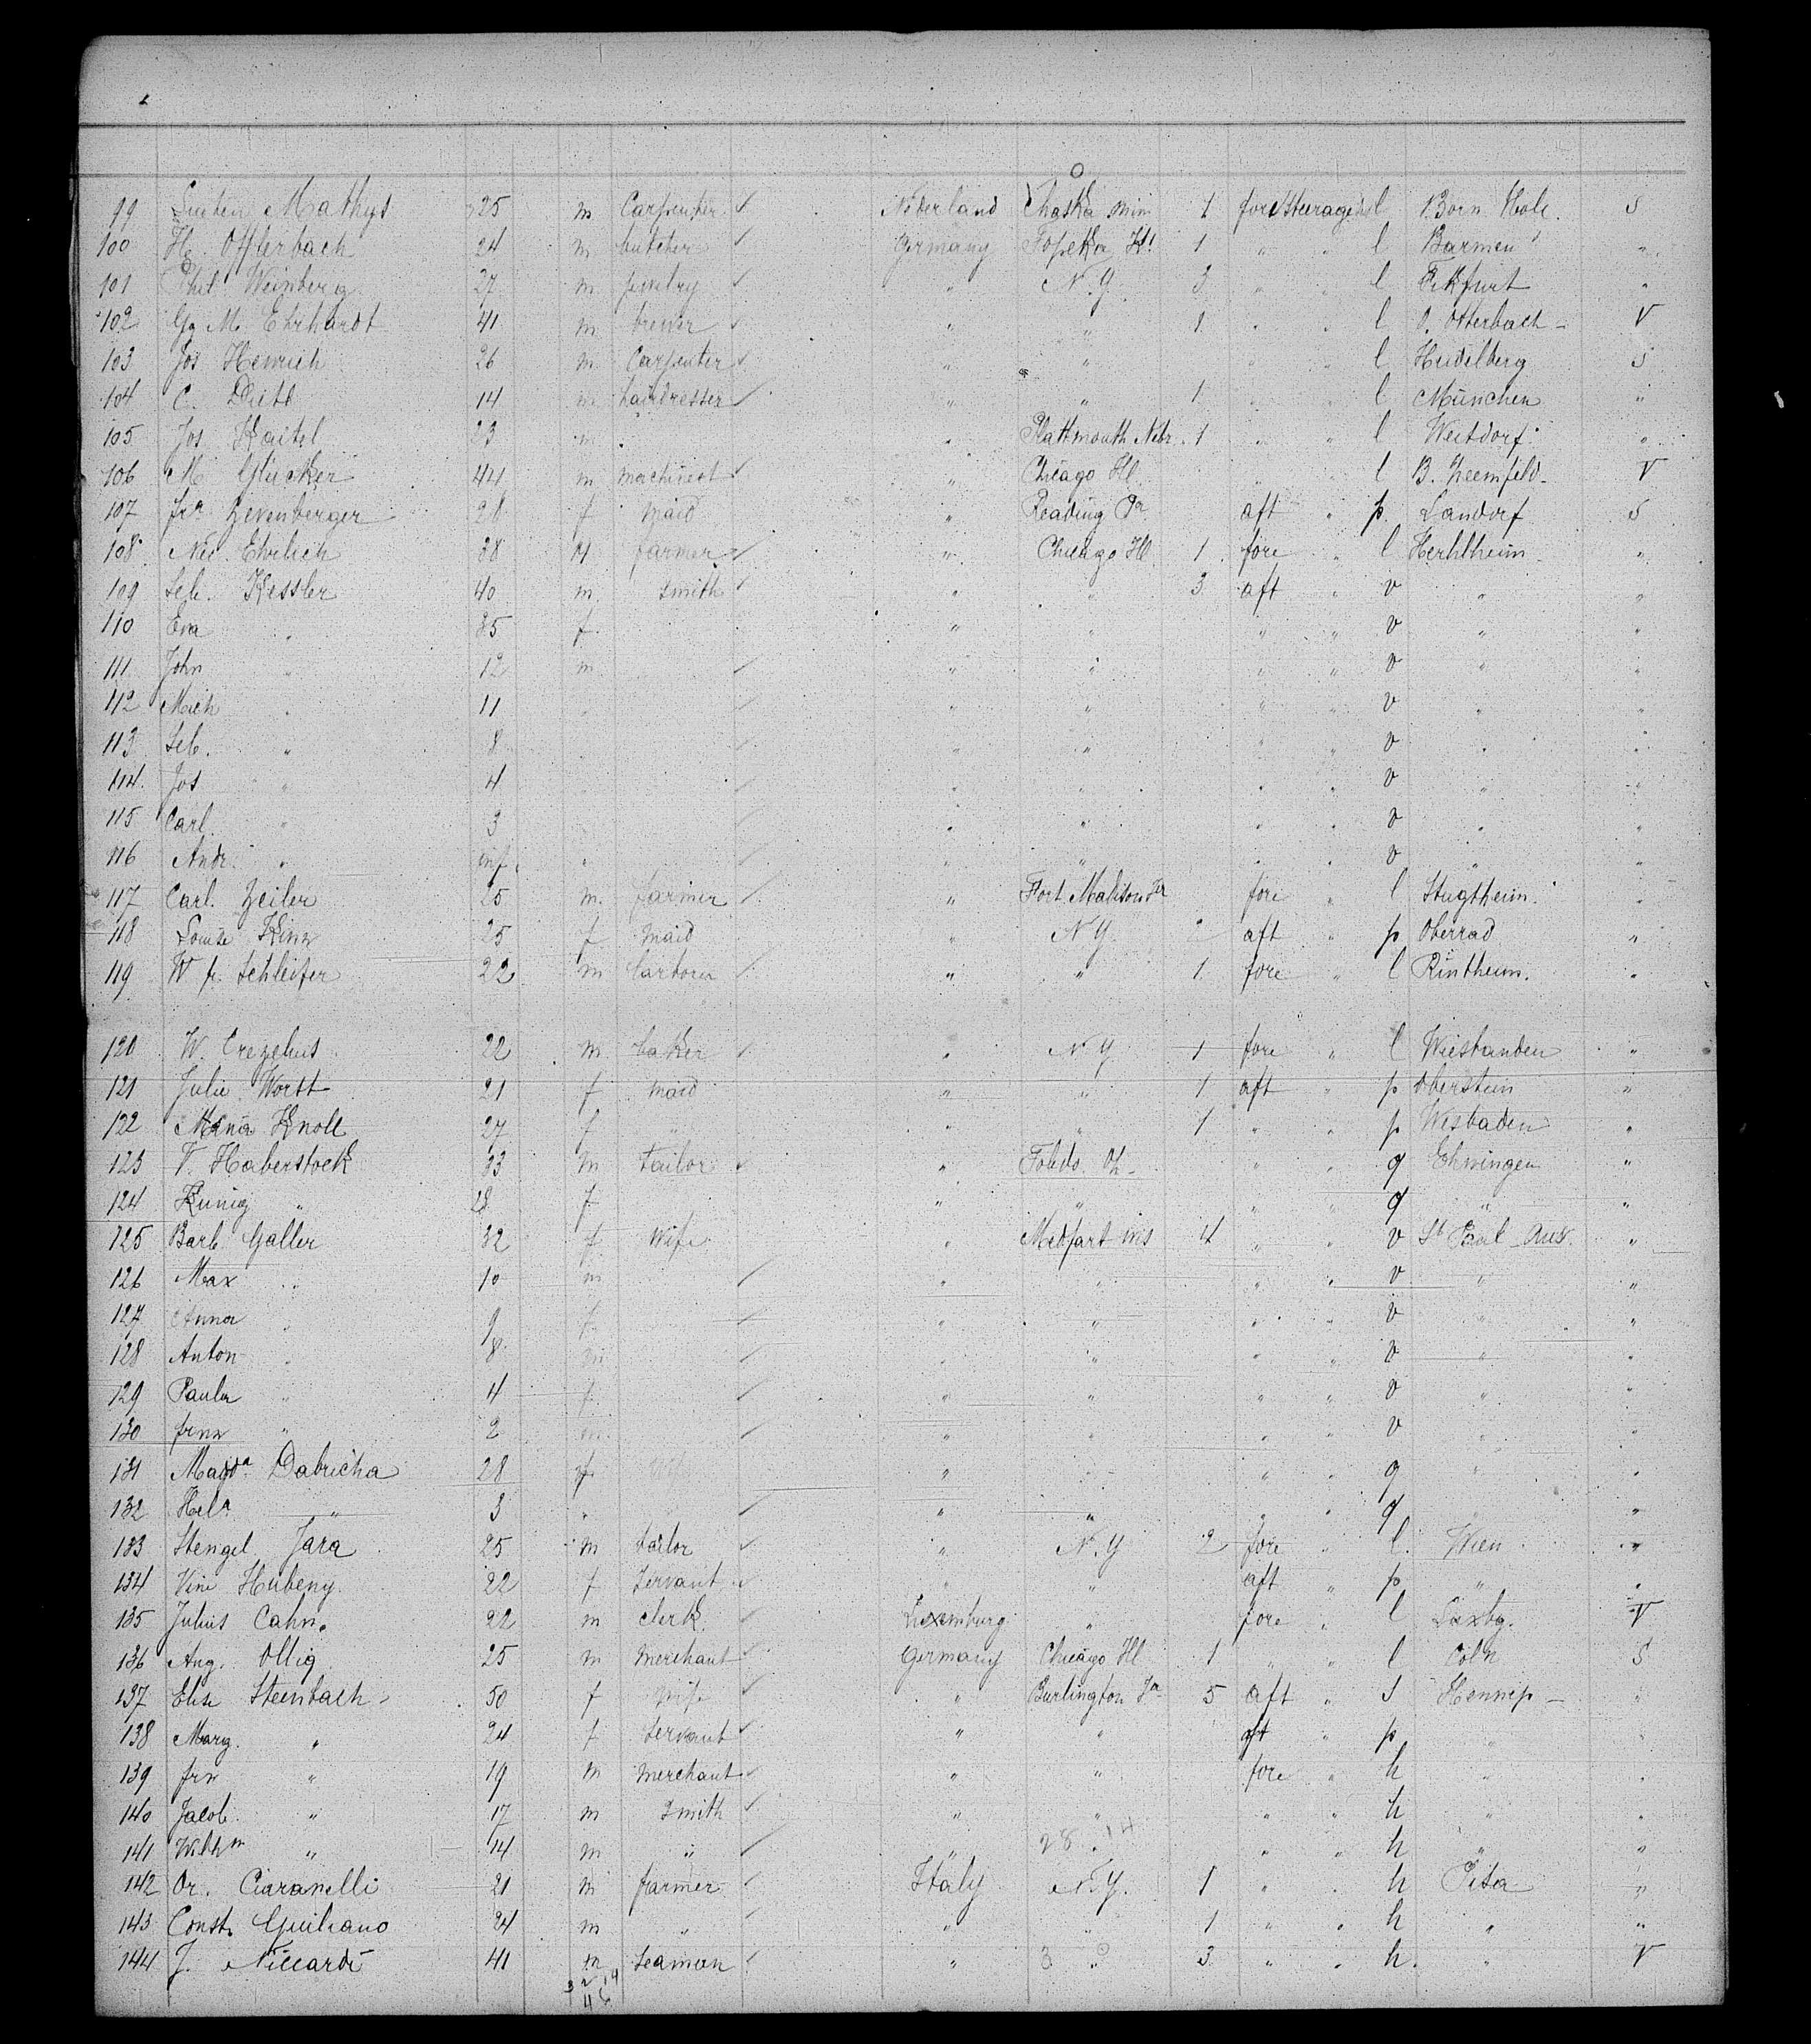 99 Mathys 25 m Carpenter ✓ Nederland Chaska Min 1 fore Steerage l Born Hol. S
100 Offerbach 24 m butcher ✓ Germany Topeka Ks 1 " " l Barmen "
101 Phil Weinberg 27 m jewelry ✓ " N.Y. 3 " " l Frkfurt "
102 Gg M. Ehrhardt 41 m brewer ✓ " " 1 " " l O. Otterbach V
103 Jos Henrich 26 m Carpenter ✓ " " " " l Heidelberg S
104 C. 14 m hairdresser ✓ " " 1 " " l München "
105 Jos 23 m " " Plattmouth Nebr. 1 " " l "
106 M Glücker 44 m machinest ✓ " Chicago Ill " " l V
107 frz Zevenberger f maid " Reading Pa aft " p Landorf S
108 Nic. Ehrlich 38 M farmer ✓ " Chicago Ill 1 fore " l "
109 Seb. Kessler 40 m. Smith ✓ " " 3 aft " v " "
110 Eva " 35 f " " " " v " "
111 John " 12 m ✓ " " " " v " "
112 Mich " 11 " ✓ " " " " v " "
113 Seb. " 8 " ✓ " " " " v " "
114 Jos " 4 " ✓ " " " " v " "
115 Carl " 3 ✓ " " " " v " "
116 Andr. " inf. " ✓ " " " " v " "
117 Carl. Zeiler 25 m. farmer ✓ " Fort Madison fore " l "
118 Louise Kinz 25 f maid " N.Y. " aft " p Oberrad "
119 W fr Schleifer 22 m ✓ " " 1 fore " l Rintheim. "
120 W. Crezelius 22 m baker ✓ " N.Y 1 fore " l "
121 Julie Worst 21 f maid " " 1 aft " p Oberstein "
122 Mina Knoll 27 f " " " 1 " " p Wisbaden "
123 V. Haberstock 33 m tailor ✓ " Toledo Oh " " q Ehwingen "
124 Kunig " 28 f " " " " q " "
125 Barb Galler 32 f wife " Medfart Wis 4 " " v St Paul Aus. "
126 Max " 10 m ✓ " " " " v " "
127 Anna " 9 f ✓ " " " " v " "
128 Anton " 8 m ✓ " " " " v " "
129 Paula " 4 f ✓ " " " " v " "
130 frnz " 2 m ✓ " " " " v " "
131 Magda Dabricha 28 f " " " " q " "
132 Hela " 3 " ✓ " " " " q " "
133 Stengel Jara 25 m tailor ✓ " N.Y 2 fore " l Wien "
134 Vini Hubeny 22 f Servant ✓ " " aft " p " "
135 Julius Cahn 22 m clerk Luxemburg " fore " l Luxbg. V
136 Aug. Ollig 25 m merchant ✓ Germany Chicago Ill 1 " " l Coln S
137 Elise Steinbach 50 f wife ✓ " Burlington Ja 5 aft " S Hennep "
138 Marg. " 24 f Servant ✓ " " aft " p " "
139 frz " 19 m merchant ✓ " " fore " h " "
140 Jacob " 17 m Smith ✓ " " " " h " "
141 Wilhm " 14 m " ✓ " 28 14 " " h " "
142 Or. Ciaranelli 21 m farmer ✓ Italy N.Y. 1 " " h Pisa "
143 Const. Guiliano 24 m " ✓ " " 1 " " h " "
144 J. Niccardi 41 m Seaman ✓ " 3 " 3 " " h " V